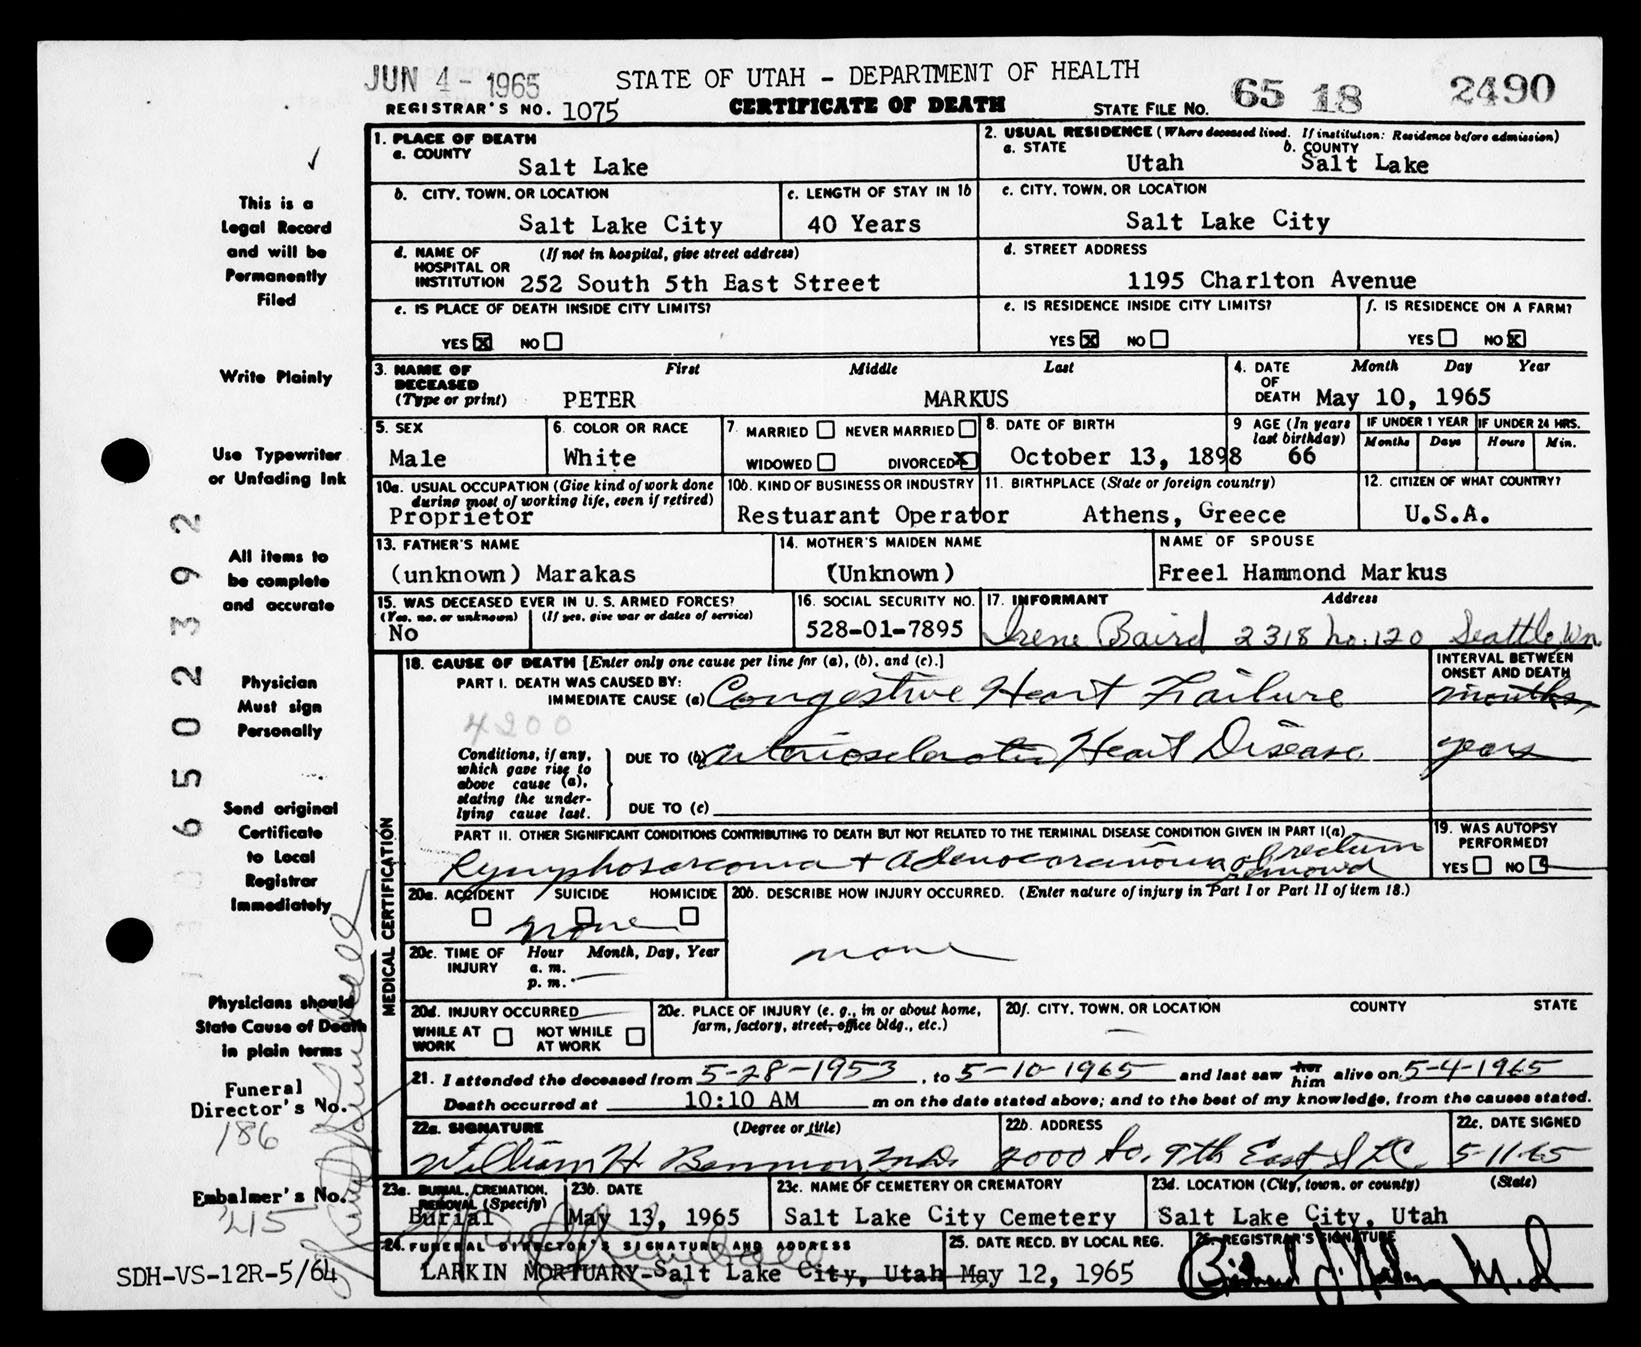 JUN 4 - 1965
STATE OF UTAH - DEPARTMENT OF HEALTH
REGISTRAR'S NO. 1075
CERTIFICATE OF DEATH
STATE FILE NO. 65 18 2490
This is a
Legal Record
and will be
Permanently
Filed
Write Plainly
Use Typewriter
or Unfading Ink
All items to
be complete
and accurate
Physician
Must sign
Personally
Send original
Certificate
to Local
Registrar
Immediately
Physicians should
State Cause of Death
in plain terms
Funeral
Director's No.
186
Embalmer's No.
215
SDH-VS-12R-5/64
65 02392
1. PLACE OF DEATH
a. COUNTY
Salt Lake
2. USUAL RESIDENCE (Where deceased lived. If institution: Residence before admission)
a. STATE
Utah
b. COUNTY
Salt Lake
b. CITY, TOWN, OR LOCATION
Salt Lake City
c. LENGTH OF STAY IN 1b
40 Years
c. CITY, TOWN, OR LOCATION
Salt Lake City
d. NAME OF HOSPITAL OR INSTITUTION (If not in hospital, give street address)
252 South 5th East Street
d. STREET ADDRESS
1195 Charlton Avenue
e. IS PLACE OF DEATH INSIDE CITY LIMITS?
YES X NO
e. IS RESIDENCE INSIDE CITY LIMITS?
YES X NO
f. IS RESIDENCE ON A FARM?
YES NO X
3. NAME OF DECEASED (Type or print)
First Middle Last
PETER MARKUS
4. DATE OF DEATH
Month Day Year
May 10, 1965
5. SEX
Male
6. COLOR OR RACE
White
7. MARRIED NEVER MARRIED
WIDOWED DIVORCED X
8. DATE OF BIRTH
October 13, 1898
9 AGE (In years last birthday)
66
IF UNDER 1 YEAR
Months Days
IF UNDER 24 HRS.
Hours Min.
10a. USUAL OCCUPATION (Give kind of work done during most of working life, even if retired)
Proprietor
10b. KIND OF BUSINESS OR INDUSTRY
Restuarant Operator
11. BIRTHPLACE (State or foreign country)
Athens, Greece
12. CITIZEN OF WHAT COUNTRY?
U.S.A.
13. FATHER'S NAME
(unknown) Marakas
14. MOTHER'S MAIDEN NAME
(Unknown)
NAME OF SPOUSE
Freel Hammond Markus
15. WAS DECEASED EVER IN U. S. ARMED FORCES?
(Yes, no, or unknown) (If yes, give war or dates of service)
No
16. SOCIAL SECURITY NO.
528-01-7895
17. INFORMANT Address
Irene Baird 2318 No. 120 Seattle, Wn
MEDICAL CERTIFICATION
18. CAUSE OF DEATH [Enter only one cause per line for (a), (b), and (c).]
INTERVAL BETWEEN ONSET AND DEATH
PART I. DEATH WAS CAUSED BY:
IMMEDIATE CAUSE (a) Congestive Heart Failure months
4200
Conditions, if any, which gave rise to above cause (a), stating the underlying cause last.
DUE TO (b) arteriosclerotic Heart Disease years
DUE TO (c)
PART II. OTHER SIGNIFICANT CONDITIONS CONTRIBUTING TO DEATH BUT NOT RELATED TO THE TERMINAL DISEASE CONDITION GIVEN IN PART I(a)
Lymphosarcoma + adenocarcinoma of rectum removed
19. WAS AUTOPSY PERFORMED?
YES NO
20a. ACCIDENT SUICIDE HOMICIDE
none
20b. DESCRIBE HOW INJURY OCCURRED. (Enter nature of injury in Part I or Part II of item 18.)
none
20c. TIME OF INJURY Hour Month, Day, Year
a. m.
p. m.
20d. INJURY OCCURRED
WHILE AT WORK NOT WHILE AT WORK
20e. PLACE OF INJURY (e. g., in or about home, farm, factory, street, office bldg., etc.)
20f. CITY, TOWN, OR LOCATION COUNTY STATE
21. I attended the deceased from 5-28-1953, to 5-10-1965 and last saw her him alive on 5-4-1965
Death occurred at 10:10 AM m on the date stated above; and to the best of my knowledge, from the causes stated.
22a. SIGNATURE (Degree or title)
William H. Bennion M.D.
22b. ADDRESS
2000 So. 9th East S L C
22c. DATE SIGNED
5-11-65
23a. BURIAL, CREMATION, REMOVAL (Specify)
Burial
23b. DATE
May 13, 1965
23c. NAME OF CEMETERY OR CREMATORY
Salt Lake City Cemetery
23d. LOCATION (City, town, or county) (State)
Salt Lake City, Utah
24. FUNERAL DIRECTOR'S SIGNATURE AND ADDRESS
LARKIN MORTUARY-Salt Lake City, Utah
25. DATE RECD. BY LOCAL REG.
May 12, 1965
26. REGISTRAR'S SIGNATURE
M.D